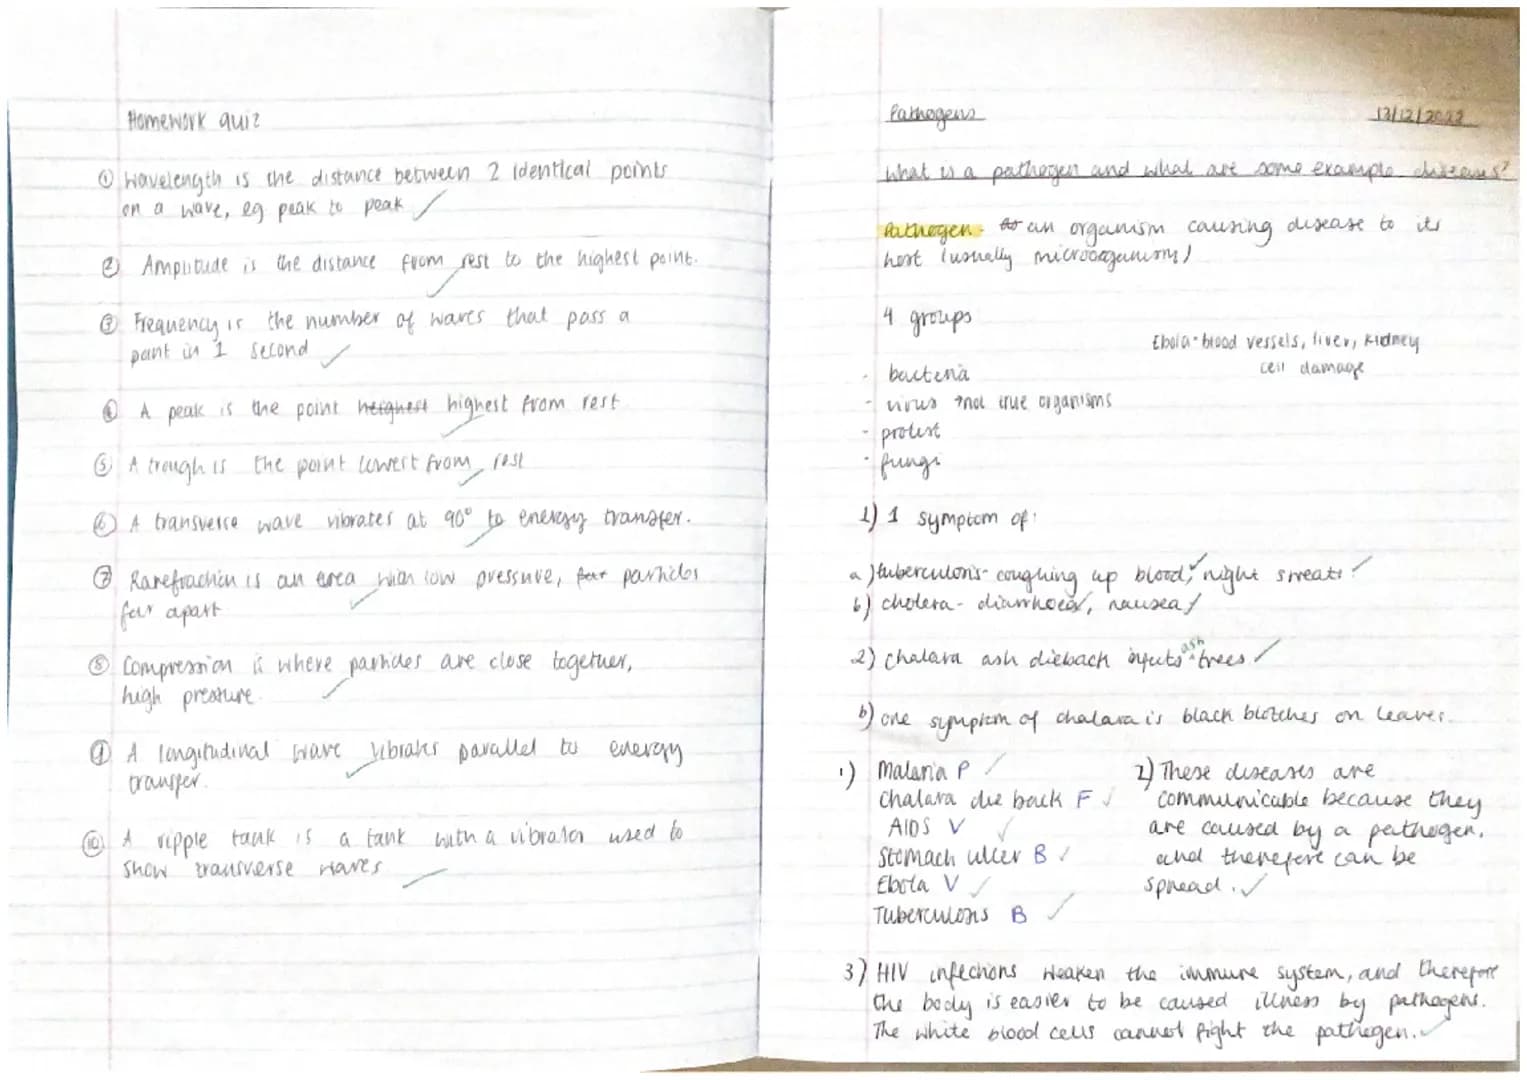 Homework quiz
① Wavelength is the distance between 2 identical points
on a wave, eg peak to peak
② Amplitude is the distance from rest to the highest point.
③ Frequency is the number of waves that pass a
point in 1 second
④ A peak is the point heighest highest from rest
⑤ A trough is the point lowest from rest
⑥ A transverse wave vibrates at 90° to energy transfer.
⑦ Rarefraction is an area with low pressure, particles
far apart
⑧ Compression is where particles are close together,
high pressure.
⑨ A longitudinal wave vibrates parallel to energy
transfer.
⑩ A ripple tank is a tank with a vibrator used to
show transverse waves
Pathogens 13/12/2022
What is a pathogen and what are some example diseases?
Pathogen - an organism causing disease to its
host (usually microorganism)
4 groups
Ebola - blood vessels, liver, kidney
cell damage
- bacteria
- virus → not true organisms
- protist
- fungi
1) 1 symptom of:
a) tuberculosis - coughing up blood, night sweats
b) cholera - diarrhoea, nausea
2) chalara ash dieback infects ash trees
b) one symptom of chalara is black blotches on leaves.
1) Malaria P
Chalara die back F
AIDS V
Stomach ulcer B
Ebola V
Tuberculosis B
2) These diseases are
communicable because they
are caused by a pathogen,
and therefore can be
spread.
3) HIV infections weaken the immune system, and therefore
the body is easier to be caused illness by pathogens.
The white blood cells cannot fight the pathogen.